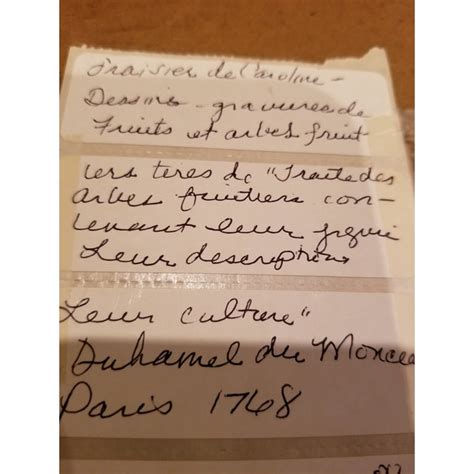 Fraisier de Caroline -
Dessins - gravures de
Fruits et arbes fruit
iers tires de "Traite des
arbes fruitiers con-
tenant leur figure
Leur description
Leur culture"
Duhamel du Moncea
Paris 1768